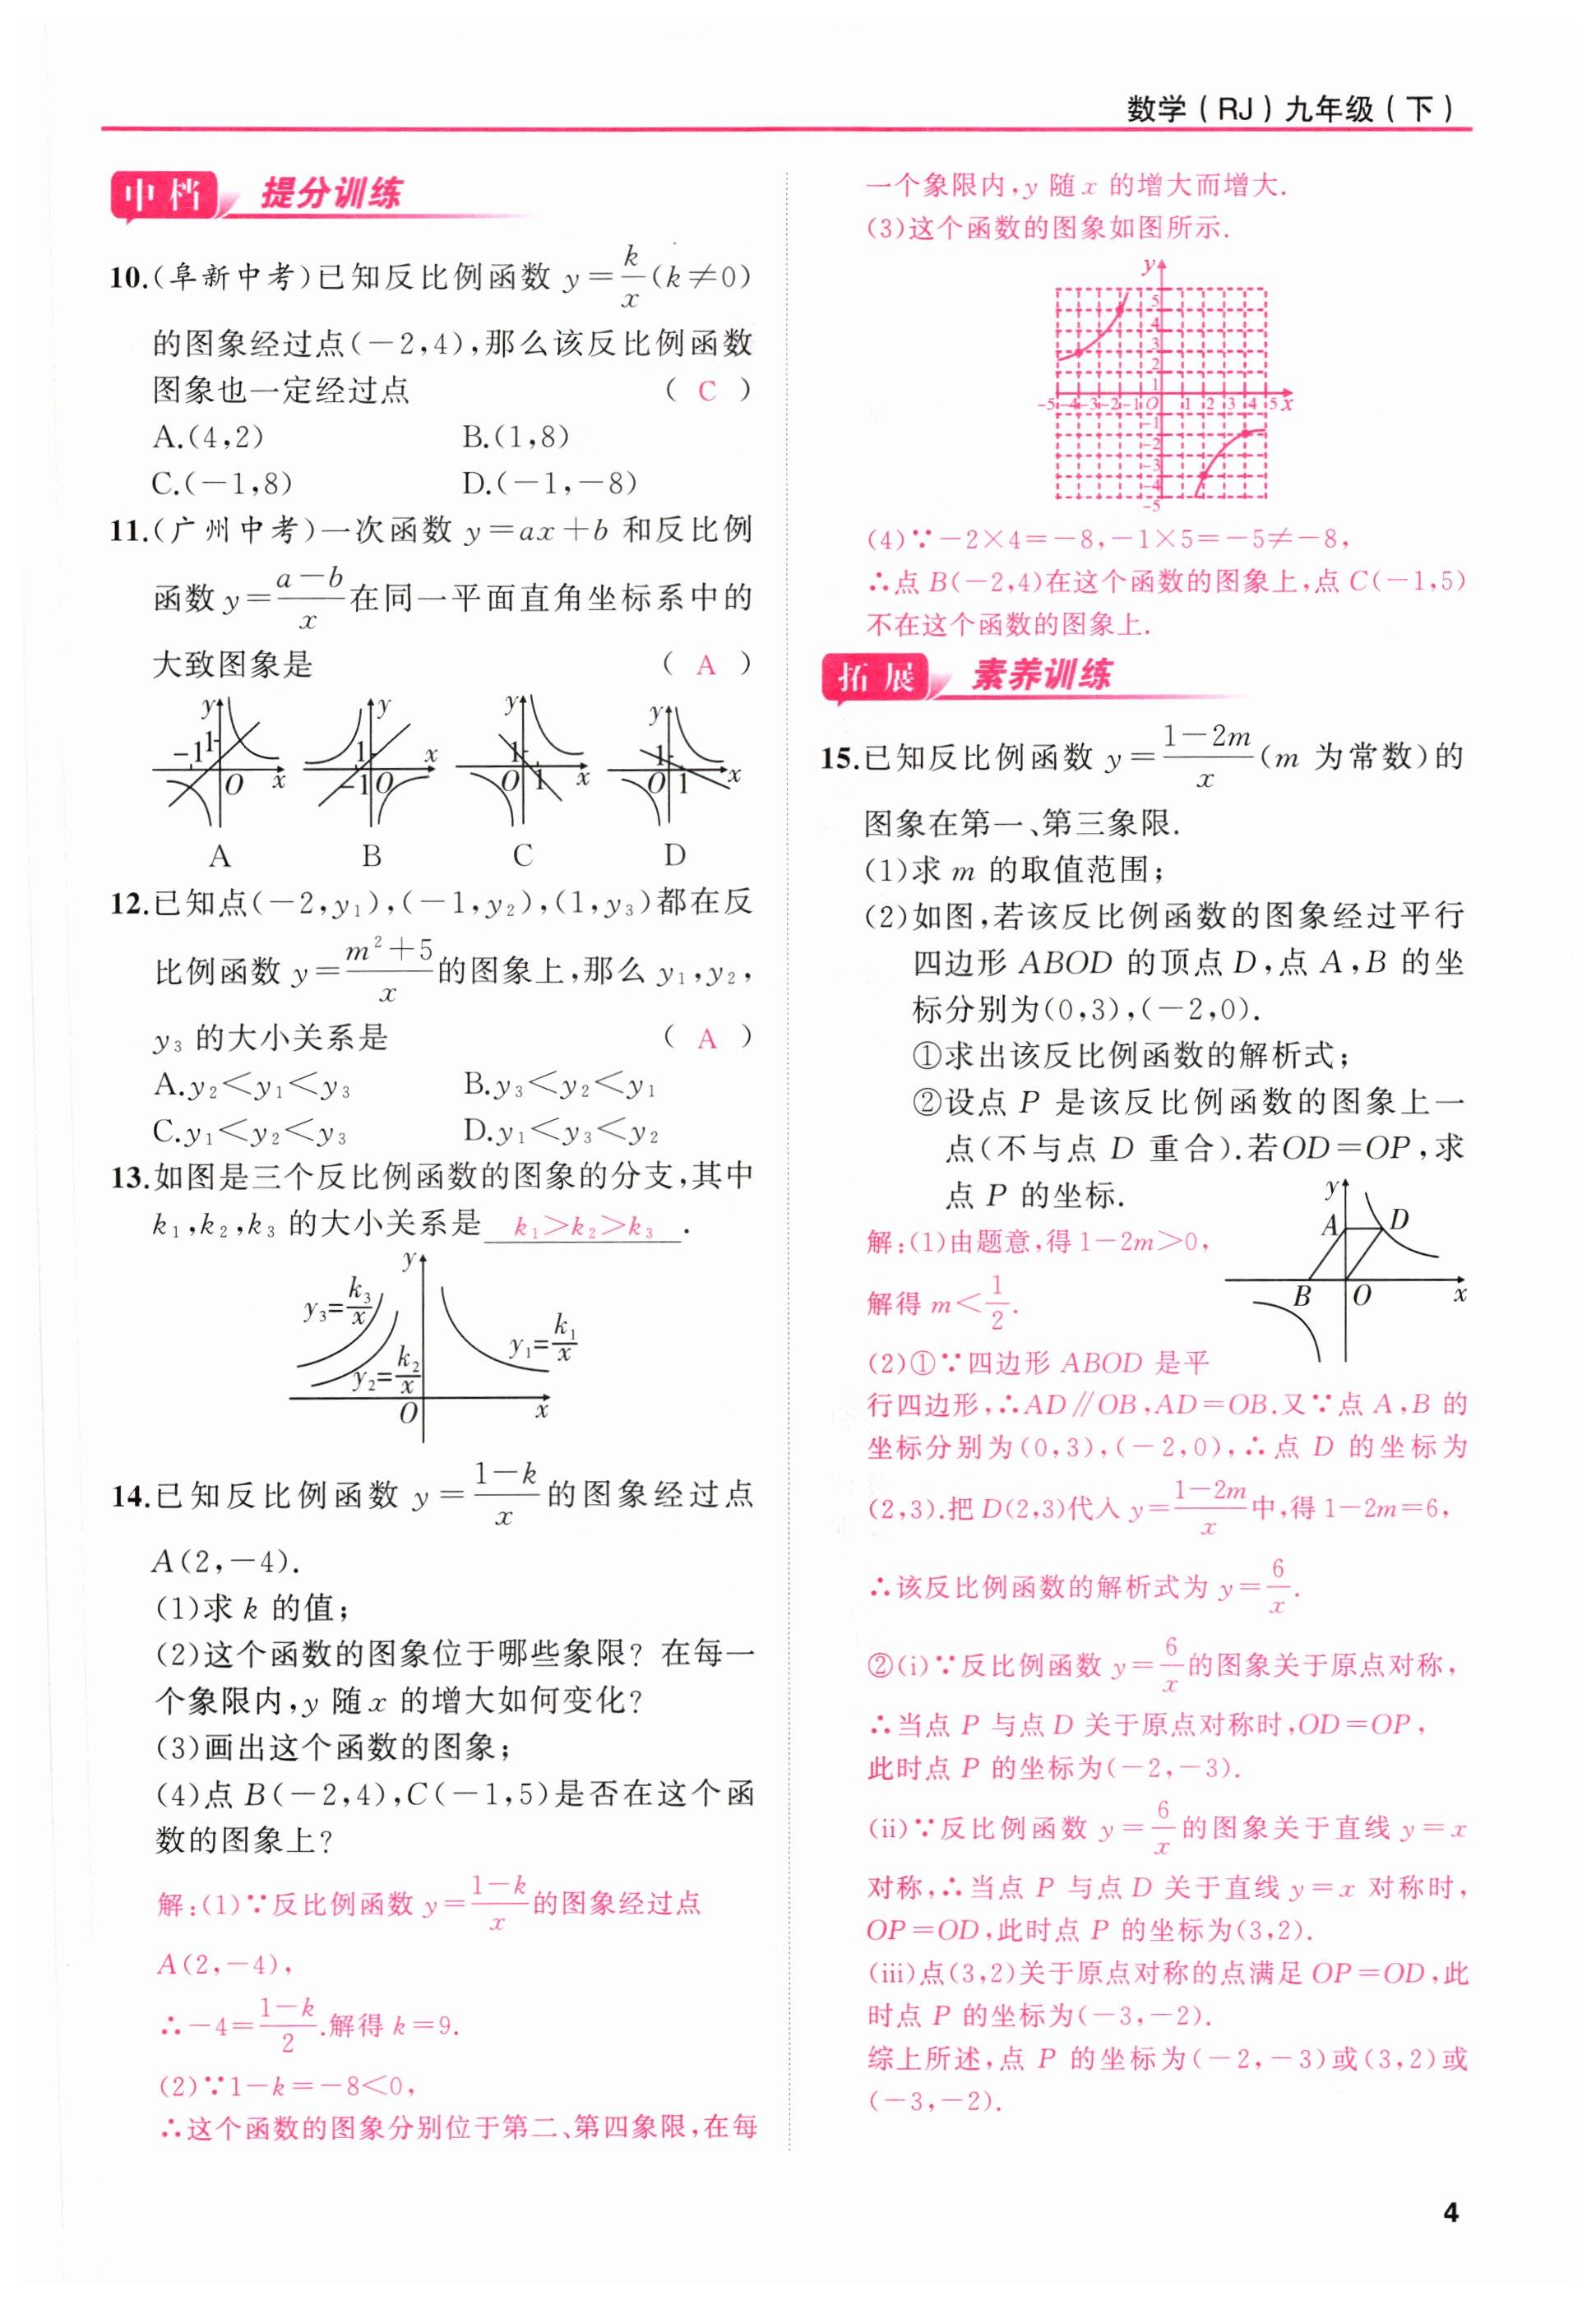 数学(RJ)九年级(下)
中档 提分训练
10.(阜新中考)已知反比例函数 y=k/x(k≠0)
的图象经过点(-2,4),那么该反比例函数
图象也一定经过点 ( C )
A.(4,2) B.(1,8)
C.(-1,8) D.(-1,-8)
11.(广州中考)一次函数 y=ax+b 和反比例
函数 y=(a-b)/x 在同一平面直角坐标系中的
大致图象是 ( A )
y y y y
-1 1 1 1 1
O x -1 O x O 1 x O 1 x
A B C D
12.已知点(-2,y₁),(-1,y₂),(1,y₃)都在反
比例函数 y=(m²+5)/x 的图象上,那么 y₁,y₂,
y₃ 的大小关系是 ( A )
A.y₂<y₁<y₃ B.y₃<y₂<y₁
C.y₁<y₂<y₃ D.y₁<y₃<y₂
13.如图是三个反比例函数的图象的分支,其中
k₁,k₂,k₃ 的大小关系是 k₁>k₂>k₃ .
y
y₃=k₃/x
y₁=k₁/x
y₂=k₂/x
O x
14.已知反比例函数 y=(1-k)/x 的图象经过点
A(2,-4).
(1)求 k 的值;
(2)这个函数的图象位于哪些象限? 在每一
个象限内,y 随 x 的增大如何变化?
(3)画出这个函数的图象;
(4)点 B(-2,4),C(-1,5)是否在这个函
数的图象上?
解:(1)∵反比例函数 y=(1-k)/x 的图象经过点
A(2,-4),
∴-4=(1-k)/2.解得 k=9.
(2)∵1-k=-8<0,
∴这个函数的图象分别位于第二、第四象限,在每
一个象限内,y 随 x 的增大而增大.
(3)这个函数的图象如图所示.
y
5
4
3
2
1
-5 -4 -3 -2 -1 O 1 2 3 4 5 x
-1
-2
-3
-4
-5
(4)∵-2×4=-8,-1×5=-5≠-8,
∴点 B(-2,4)在这个函数的图象上,点 C(-1,5)
不在这个函数的图象上.
拓展 素养训练
15.已知反比例函数 y=(1-2m)/x(m 为常数)的
图象在第一、第三象限.
(1)求 m 的取值范围;
(2)如图,若该反比例函数的图象经过平行
四边形 ABOD 的顶点 D,点 A,B 的坐
标分别为(0,3),(-2,0).
①求出该反比例函数的解析式;
②设点 P 是该反比例函数的图象上一
点(不与点 D 重合).若OD=OP,求
点 P 的坐标.
y
A D
B O x
解:(1)由题意,得 1-2m>0,
解得 m<1/2.
(2)①∵四边形 ABOD 是平
行四边形,∴AD∥OB,AD=OB.又∵点 A,B 的
坐标分别为(0,3),(-2,0),∴点 D 的坐标为
(2,3).把 D(2,3)代入 y=(1-2m)/x 中,得 1-2m=6,
∴该反比例函数的解析式为 y=6/x.
②(i)∵反比例函数 y=6/x 的图象关于原点对称,
∴当点 P 与点 D 关于原点对称时,OD=OP,
此时点 P 的坐标为(-2,-3).
(ii)∵反比例函数 y=6/x 的图象关于直线 y=x
对称,∴当点 P 与点 D 关于直线 y=x 对称时,
OP=OD,此时点 P 的坐标为(3,2).
(iii)点(3,2)关于原点对称的点满足 OP=OD,此
时点 P 的坐标为(-3,-2).
综上所述,点 P 的坐标为(-2,-3)或(3,2)或
(-3,-2).
4